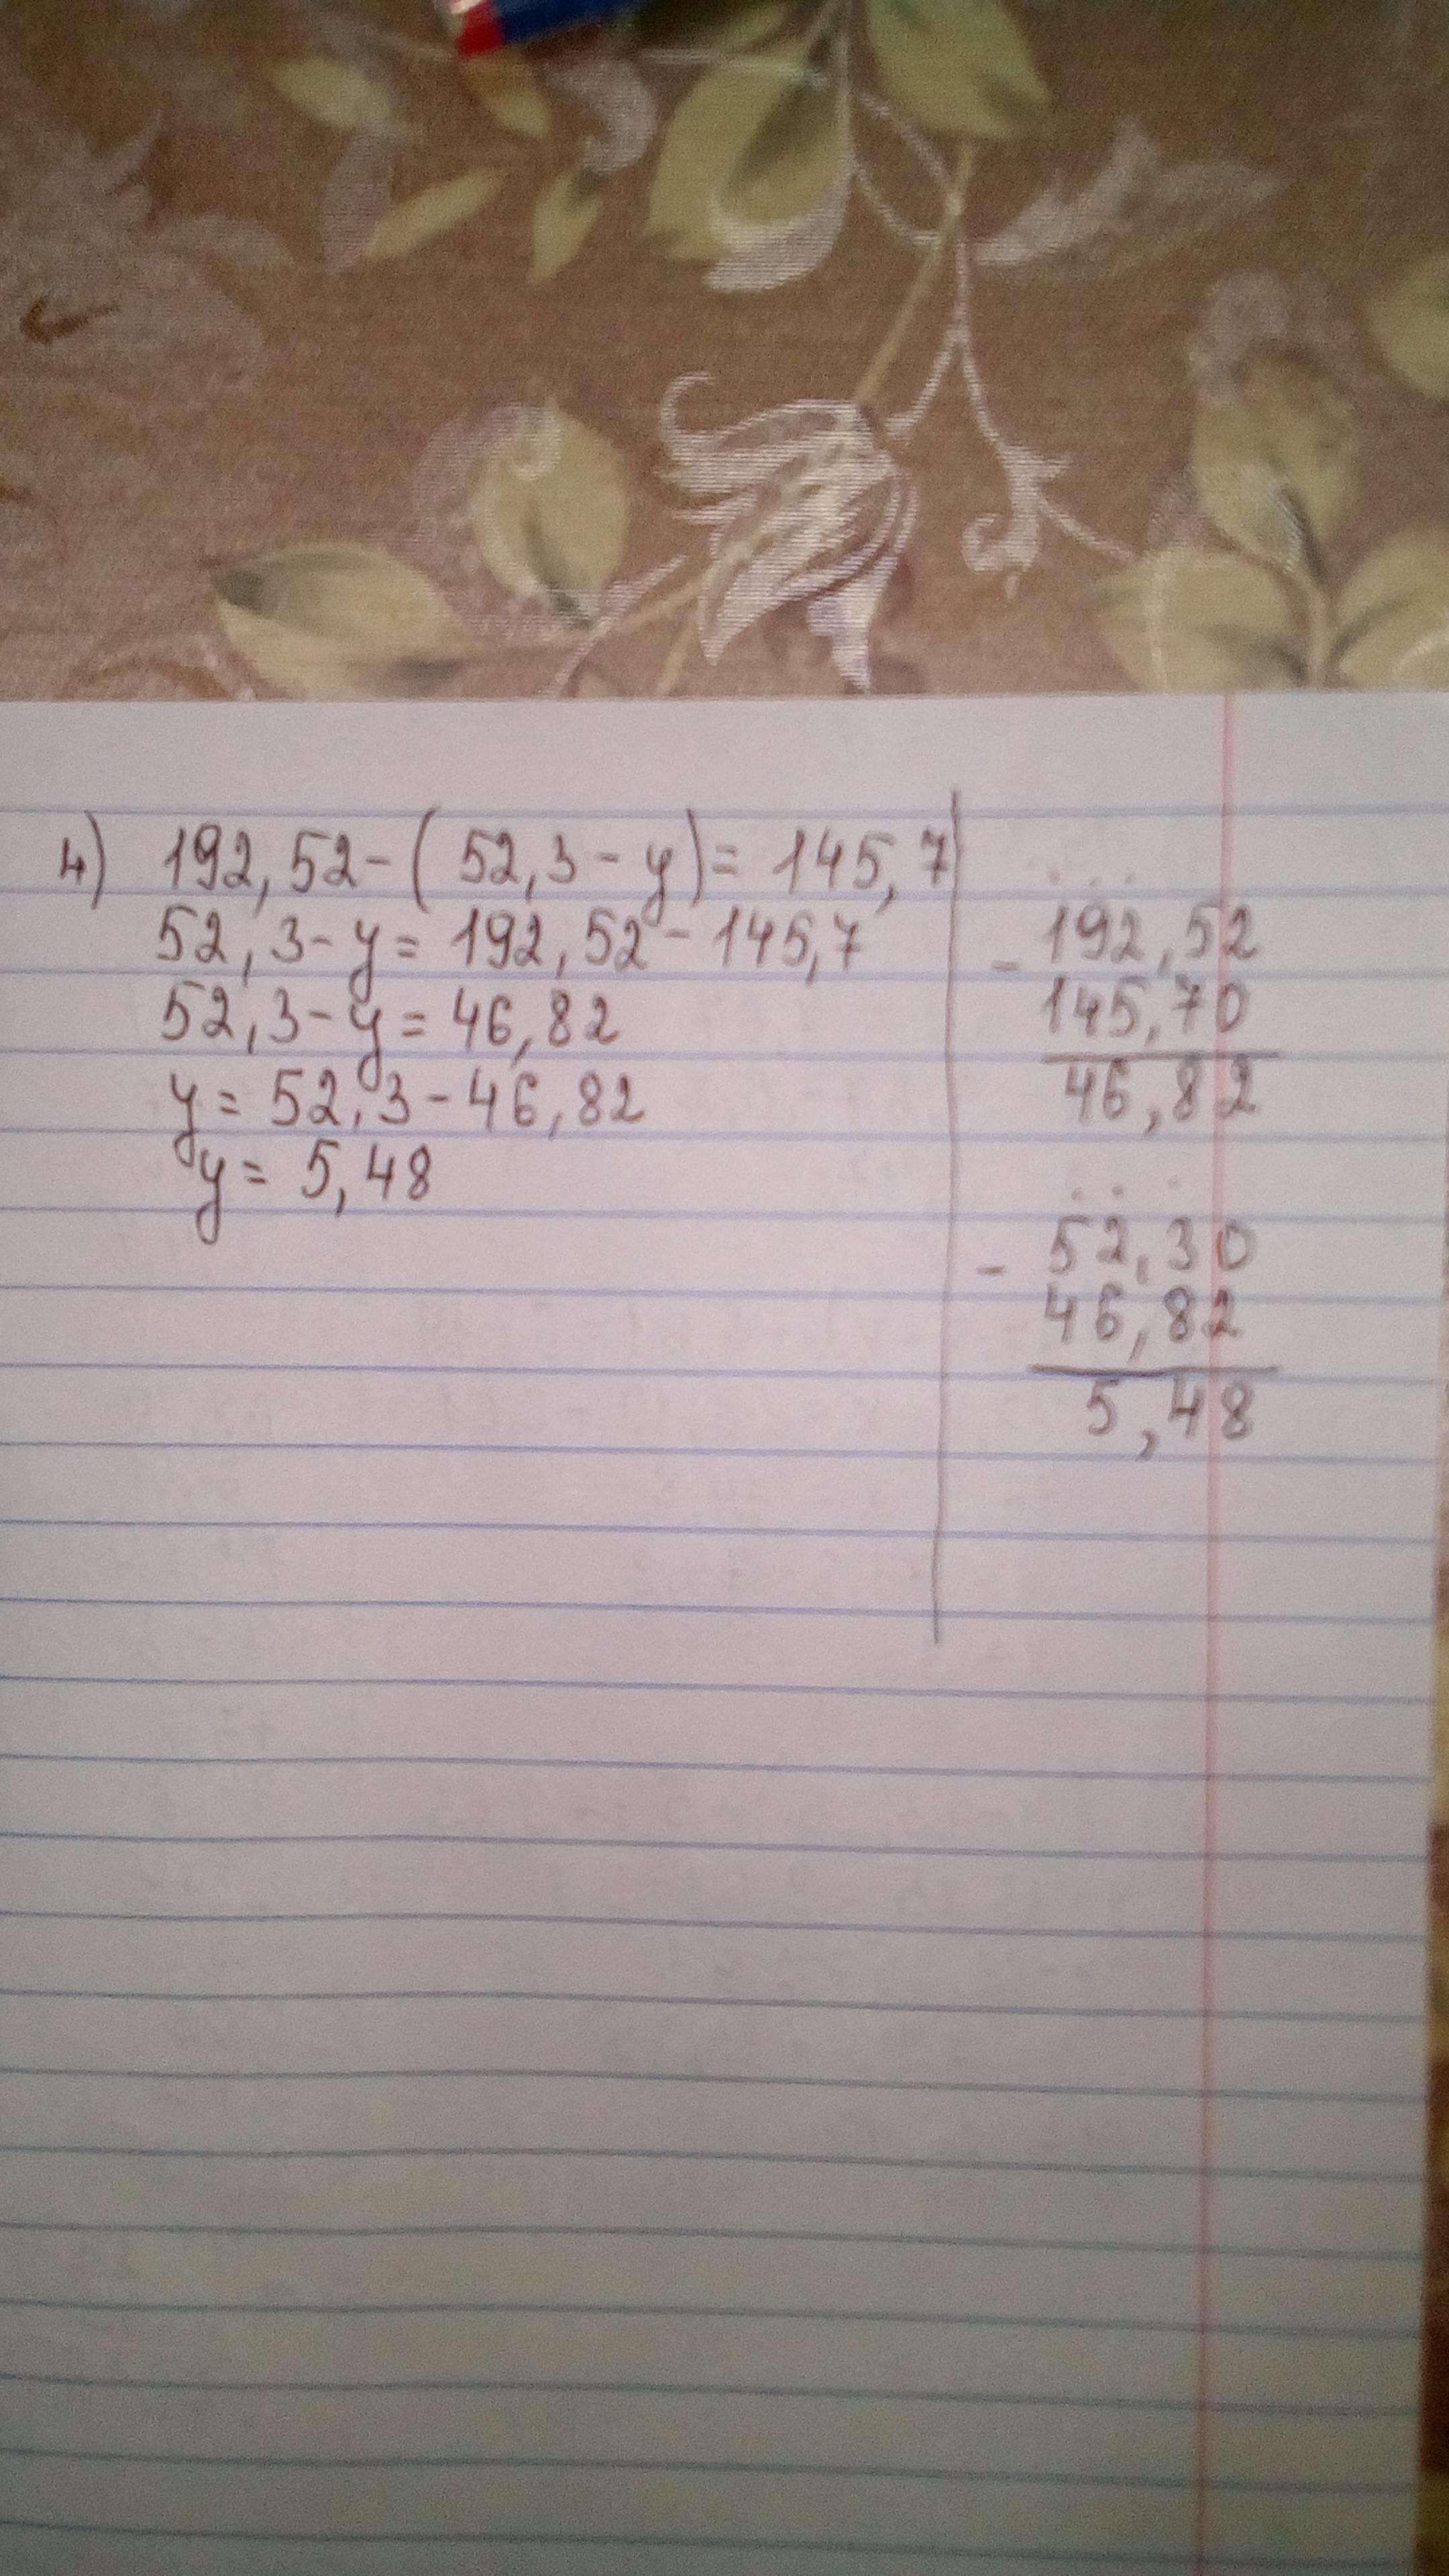 4) 192,52-(52,3-y)=145,7
52,3-y=192,52-145,7
52,3-y=46,82
y=52,3-46,82
y=5,48
- 192,52
145,70
46,82
- 52,30
46,82
5,48